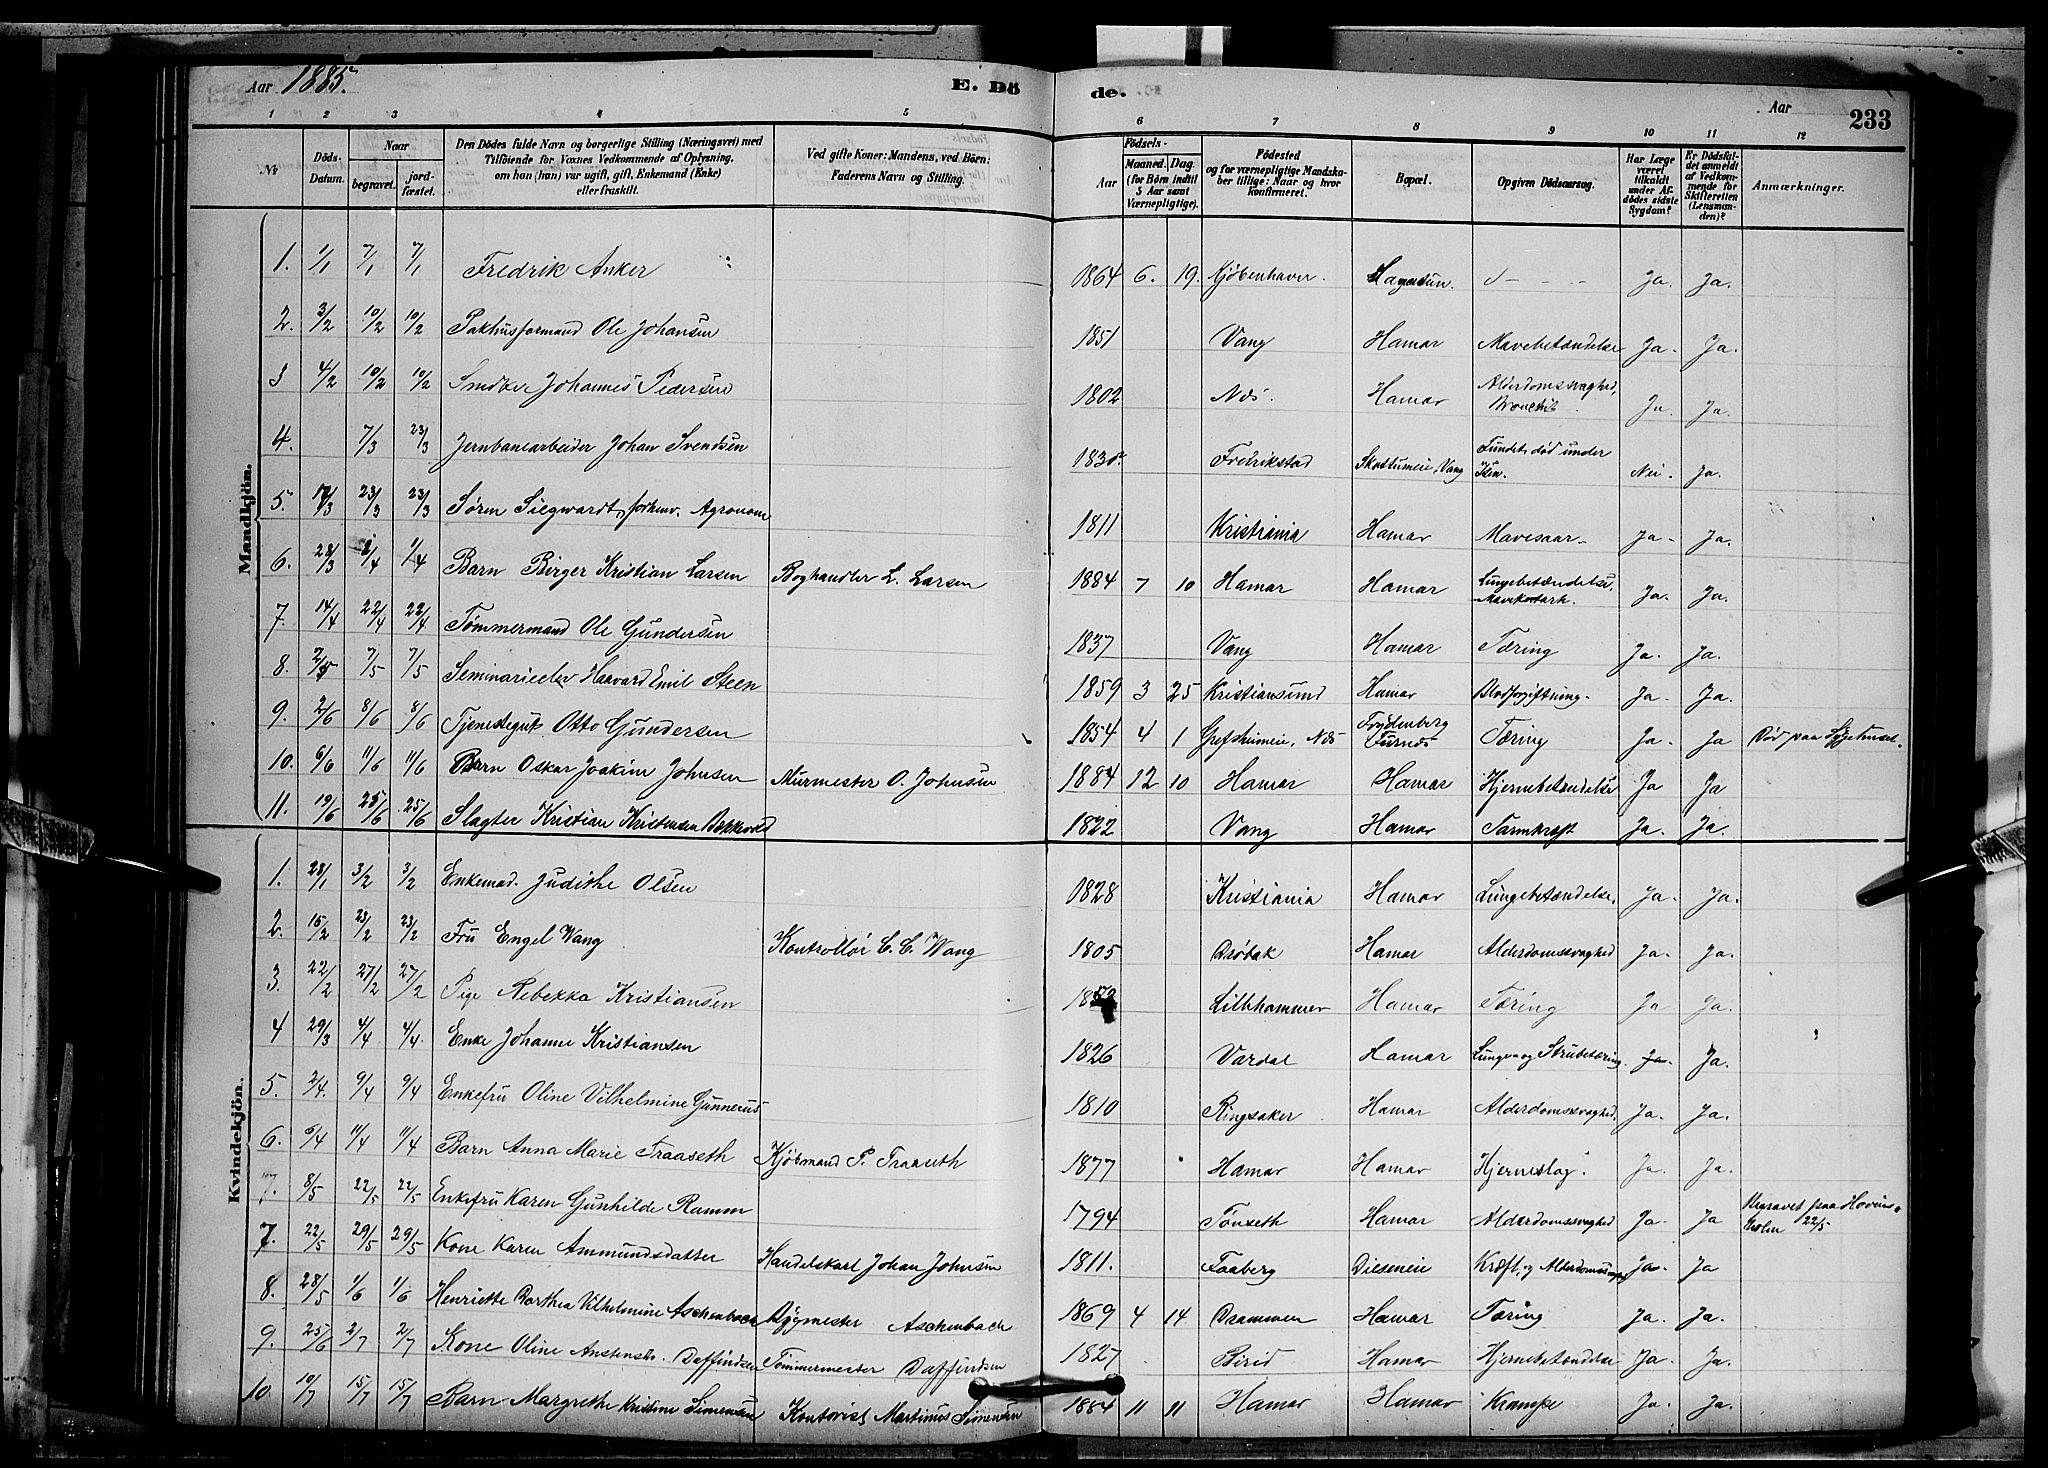 Aar 1885. E. Dö de. Aar 233
1 2 3 4 5 6 7 8 9 10 11 12
№ Döds-Datum. Naar begravet. jord-fæstet. Den Dödes fulde Navn og borgerlige Stilling (Næringsvei) med Tilföiende for Voxnes Vedkommende af Oplysning, om han (hun) var ugift, gift, Enkemand (Enke) eller fraskilt. Ved gifte Koner: Mandens, ved Börn: Faderens Navn og Stilling. Födsels- Aar Maaned. Dag. (for Börn indtil 5 Aar samt Værnepligtige). Födested og for værnepligtige Mandskaber tillige: Naar og hvor konfirmeret. Bopæl. Opgiven Dödsaarsag. Har Læge været tilkaldt under Afdödes sidste Sygdom? Er Dödsfaldet anmeldt af Vedkommende for Skifteretten (Lensmanden)? Anmærkninger.
Mandkjön.
1. 1/1 7/1 7/1 Fredrik Anker 1864 6. 19. Kjöbenhavn. Ja. Ja.
2. 3/2 10/2 10/2 Pakhusformand Ole Johansen 1851 Vang Hamar Mavebetændelse Ja. Ja.
3 4/2 10/2 10/2 Johannes Pedersen 1802 Næs. Hamar Alderdomssvaghed, Ja. Ja.
4. 7/3 23/3 Jernbanearbeider Johan Svendsen Fredrikstad Vang Fundet død under Isen. Nei - Ja.
5. 17/3 23/3 23/3 Søren Siegwardt, forhenv. Agronom 1811 Kristiania Hamar Mavesaar - Ja - Ja.
6. 28/3 1/4 1/4 Barn Birger Kristian Larsen Boghandler L. Larsen 1884 7 10 Hamar Hamar Lungebetændelse, Mavekatarh. Ja. Ja.
7. 14/4 22/4 22/4 Tømmermand Ole Gundersen 1837 Vang Hamar Tæring Ja. Ja.
8. 2/5 7/5 7/5 Seminarieelev Haavard Emil Steen 1859 3 25 Kristiansund Hamar Blodforgiftning. Ja. Ja.
9. 2/6 8/6 8/6 Tjenestegut Otto Gundersen 1854 4 1 Grefsheimeie, Næs Frydenberg Furnæs Tæring Ja. Ja Död paa Sygehuset.
10. 6/6 11/6 11/6 Barn Oskar Joakim Johnsen Murmester O. Johnsen 1884 12 10 Hamar Hamar Hjernebetændelse Ja Ja
11. 19/6 25/6 25/6 Slagter Kristian Kristensen 1822 Vang Hamar Tarmkræft Ja. Ja.
Kvindekjön.
1. 28/1 3/2 3/2 Enkemad. Judithe Olsen 1828 Kristiania Hamar Lungebetændelse. Ja. Ja.
2. 15/2 23/2 23/2 Fru Engel Wang Kontrollør C. C. Wang 1805 Drøbak Hamar Alderdomssvaghed Ja. Ja.
3. 22/2 27/2 27/2 Pige Rebekka Kristiansen Lillehammer Hamar Tæring Ja Ja.
4 29/3 4/4 4/4. Enke Johanne Kristiansen 1826 Vardal Hamar Lunge- og Strubetæring. Ja. Ja.
5. 3/4. 9/4 9/4 Enkefru Oline Vilhelmine Gunnerus 1810 Ringsaker Hamar Alderdomssvaghed. Ja. Ja.
6. 5/4 11/4 11/4 Barn Anna Marie Fraaseth Kjöbmand P. Fraaseth 1877 Hamar Hamar Hjerneslag. Ja. Ja.
7. 8/5 22/5 22/5 Enkefru Karen Gunhilde Ramm 1794 Tönseth Hamar Alderdomssvaghed Ja. Ja Begravet paa Hovinsholm 22/5
7. 22/5 29/5 29/5 Kone Karen Ammundsdatter Handelskarl Johan Johnsen 1811. Faaberg Diseneie Kræft, og Ja. Ja
8. 28/5 1/6 1/6 Henriette Dorthea Vilhelmine Aschenbach Bygmester Aschenbach 1869 4 14 Drammen Hamar Tæring Ja. Ja.
9. 25/6 2/7 2/7 Kone Oline Daffindsen Tømmermester Daffindsen 1827 Birid Hamar Hjernebetændelse Ja. Ja.
10. 10/7 15/7 15/7 Barn Margrethe Kristine Simensen Kontorist Martinus Simensen 1884 11 11 Hamar Hamar Krampe Ja. Ja.